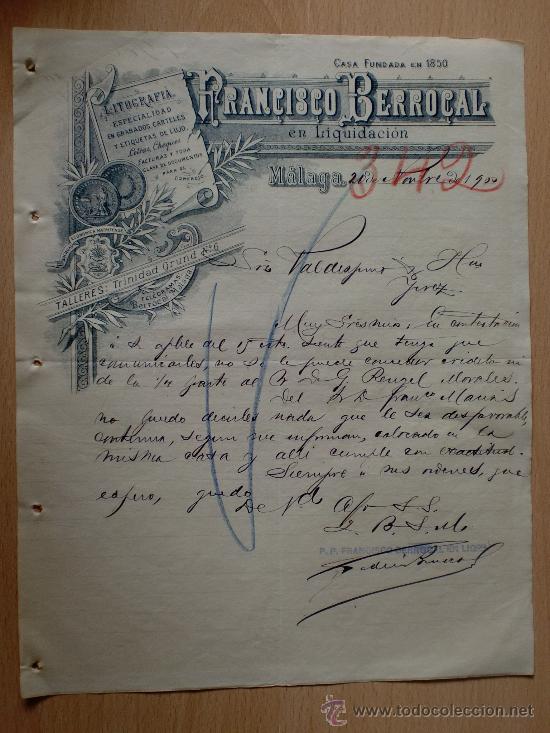 CASA FUNDADA EN 1850
FRANCISCO BERROCAL
en Liquidación
LITOGRAFIA.
ESPECIALIDAD
EN GRABADOS CARTELES
Y ETIQUETAS DE LUJO.
Letras, Cheques
FACTURAS Y TODA
CLASE DE DOCUMENTOS
PARA EL
COMERCIO
TALLERES: Trinidad Grund Nº 6
TELEGRAMAS
3112
Málaga, 21 de Novbre de 1900
Sres Valdespino y Hno
Jerez
Muy Sres mios, en contestación
á s/ apble del 15 este. siento que tenga que
comunicarles, no se le puede conceder crédito ni
de la 1/4 parte al Sr D. G. Rengel Morales.
Del Sr D. Franco
no puedo decirles nada que le sea desfavorable,
continua, segun me informan, colocado en la
misma casa y alli cumple con exactitud.
Siempre á sus ordenes, que
espero, quedo
De Vd Afo S.S.
Q. B. S. M.
P. P. FRANCISCO BERROCAL EN LIQON
todocoleccion.net